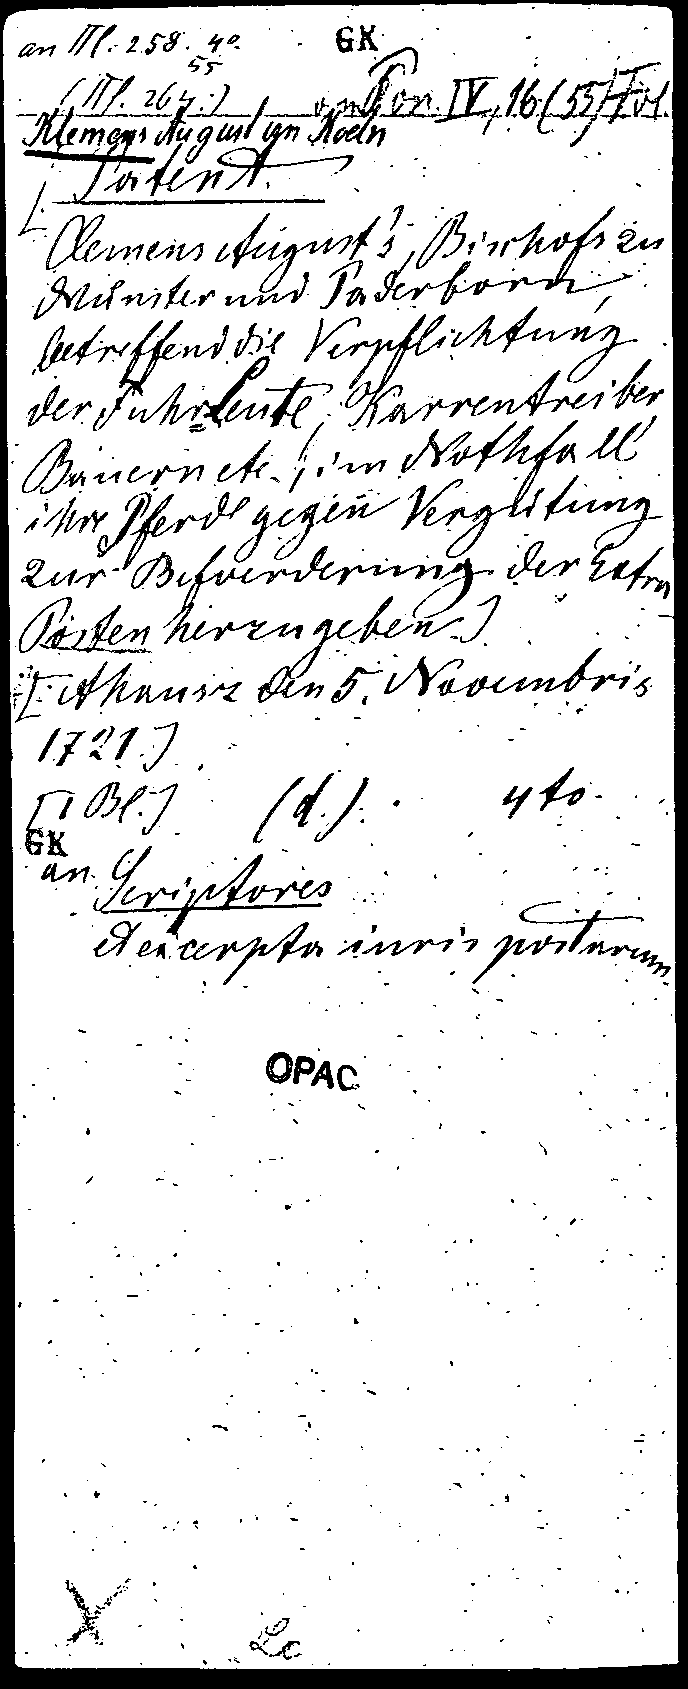 an Itl. 258. 4o. GK
55
(Itl. 264.) an Pon. IV, 16 (55) Fol.
Klemens August von Koeln
Patent.
[Clemens August's, Bischofs zu
Münster und Paderborn,
betreffend die Verpflichtung
der Fuhrleute, Karrentreiber,
Bauern etc., im Nothfall
ihre Pferde gegen Vergütung
zur Befoerderung der Extra
Posten herzugeben.]
[Ahausz den 5. Novembris
1721.]
[1 Bl.] (d.). 4to.
GK
an Scriptores
excerpta iuris postarum
OPAC
X Lc